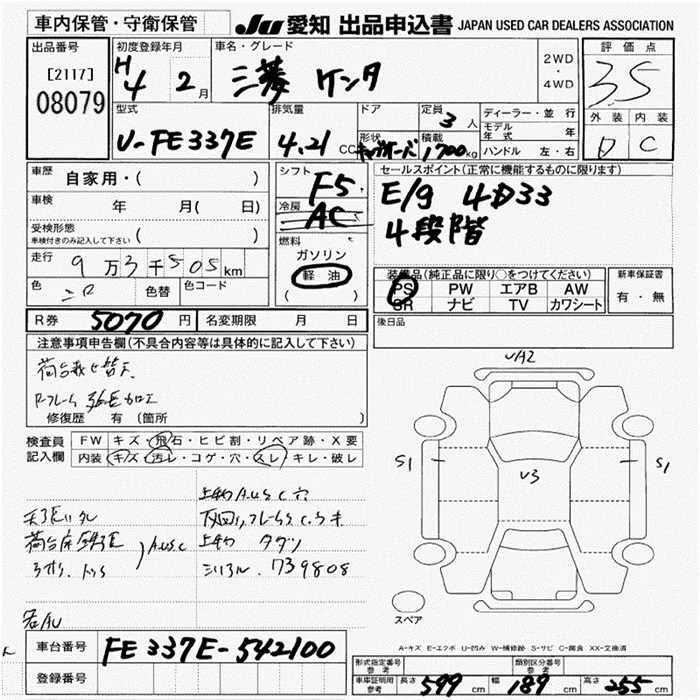 車内保管・守衛保管
JU 愛知 出品申込書 JAPAN USED CAR DEALERS ASSOCIATION
出品番号
[2117]
08079
初度登録年月
H4 2月
車名・グレード
三菱 ケンタ
2WD
・
4WD
評価点
3.5
外装 内装
D C
型式
U-FE337E
排気量
4.21 CC
ドア
形状
定員
3人
積載
1700kg
ディーラー・並行
モデル年式 年
ハンドル 左・右
車歴
自家用・( )
車検
年 月( 日)
受検形態
車検付きのみ記入して下さい ( )
走行
9万3千505km
色
色替
色コード
シフト
F5
冷房
AC
燃料
ガソリン
軽油
( )
セールスポイント(正常に機能するものに限ります)
E/g 4D33
4段階
装備品(純正品に限り○をつけてください)
PS PW エアB AW
SR ナビ TV カワシート
新車保証書
有・無
R券 5070円 名変期限 月 日
後日品
注意事項申告欄(不具合内容等は具体的に記入して下さい)
荷台載せ替え
Rフレーム 延長加工
修復歴 有(箇所 )
検査員
記入欄
FW キズ・飛石・ヒビ割・リペア跡・X要
内装 キズ・汚レ・コゲ・穴・スレ・キレ・破レ
上物A.U.S.C穴
A.U.S.C
シリアル.739808
各AU
UA2
S1
U3
S1
スペア
A-キズ E-エクボ U-凹み W-補修跡 S-サビ C-腐食 XX-交換済
車台番号 FE337E-542100
登録番号
形式指定番号
参考
類別区分番号
参考
車庫証明用
参考
長さ 599cm 幅 189cm 高さ 255cm